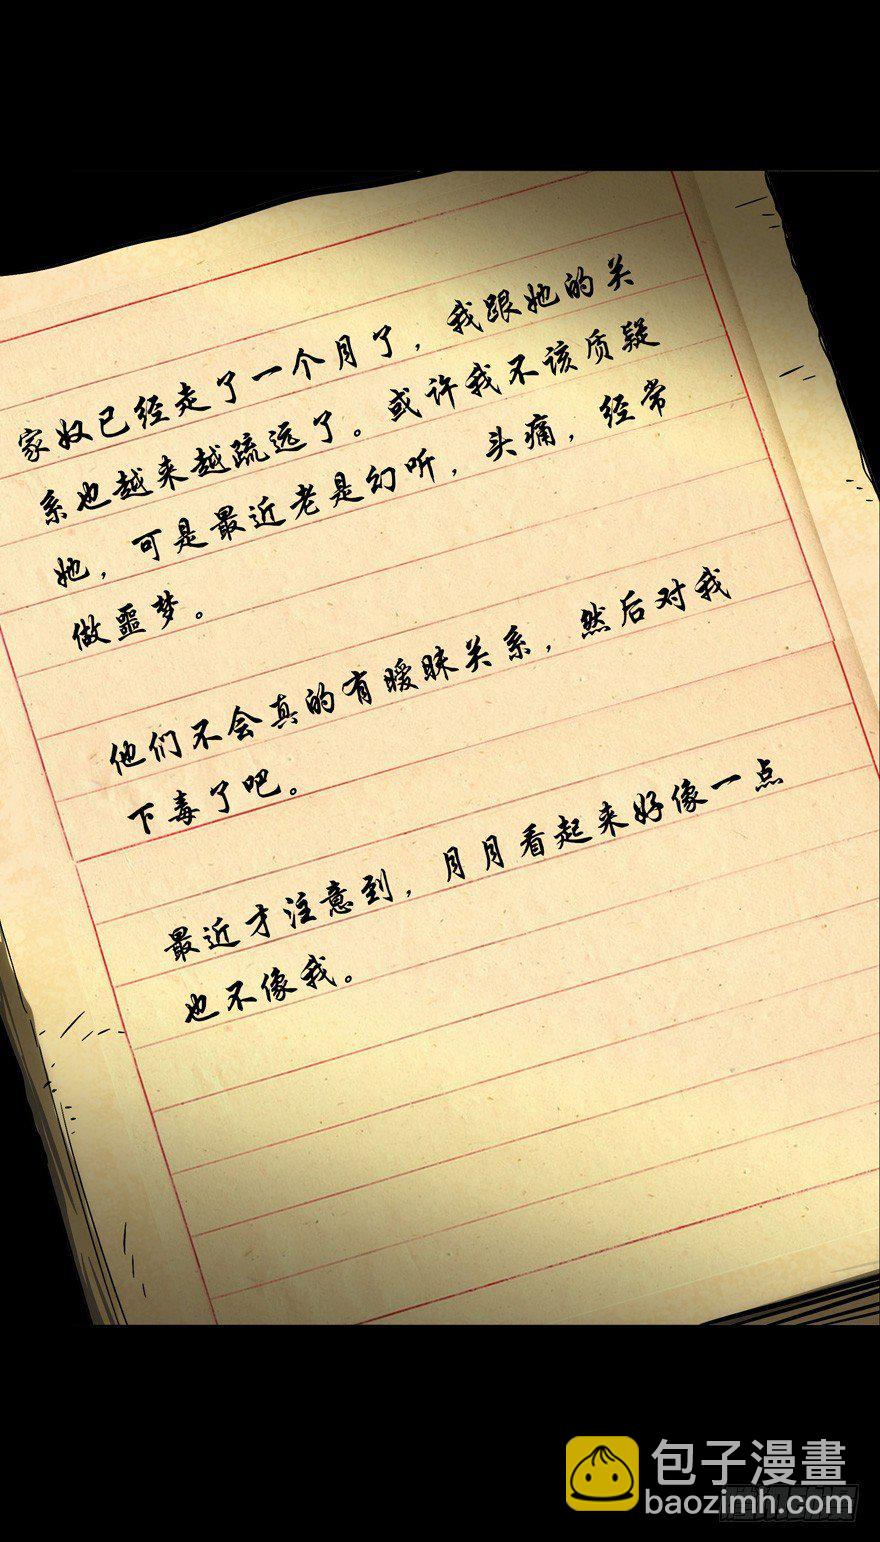 家奴已经走了一个月了，我跟她的关
系也越来越疏远了。或许我不该质疑
她，可是最近老是幻听，头痛，经常
做噩梦。
他们不会真的有暧昧关系，然后对我
下毒了吧。
最近才注意到，月月看起来好像一点
也不像我。
包子漫畫
baozimh.com